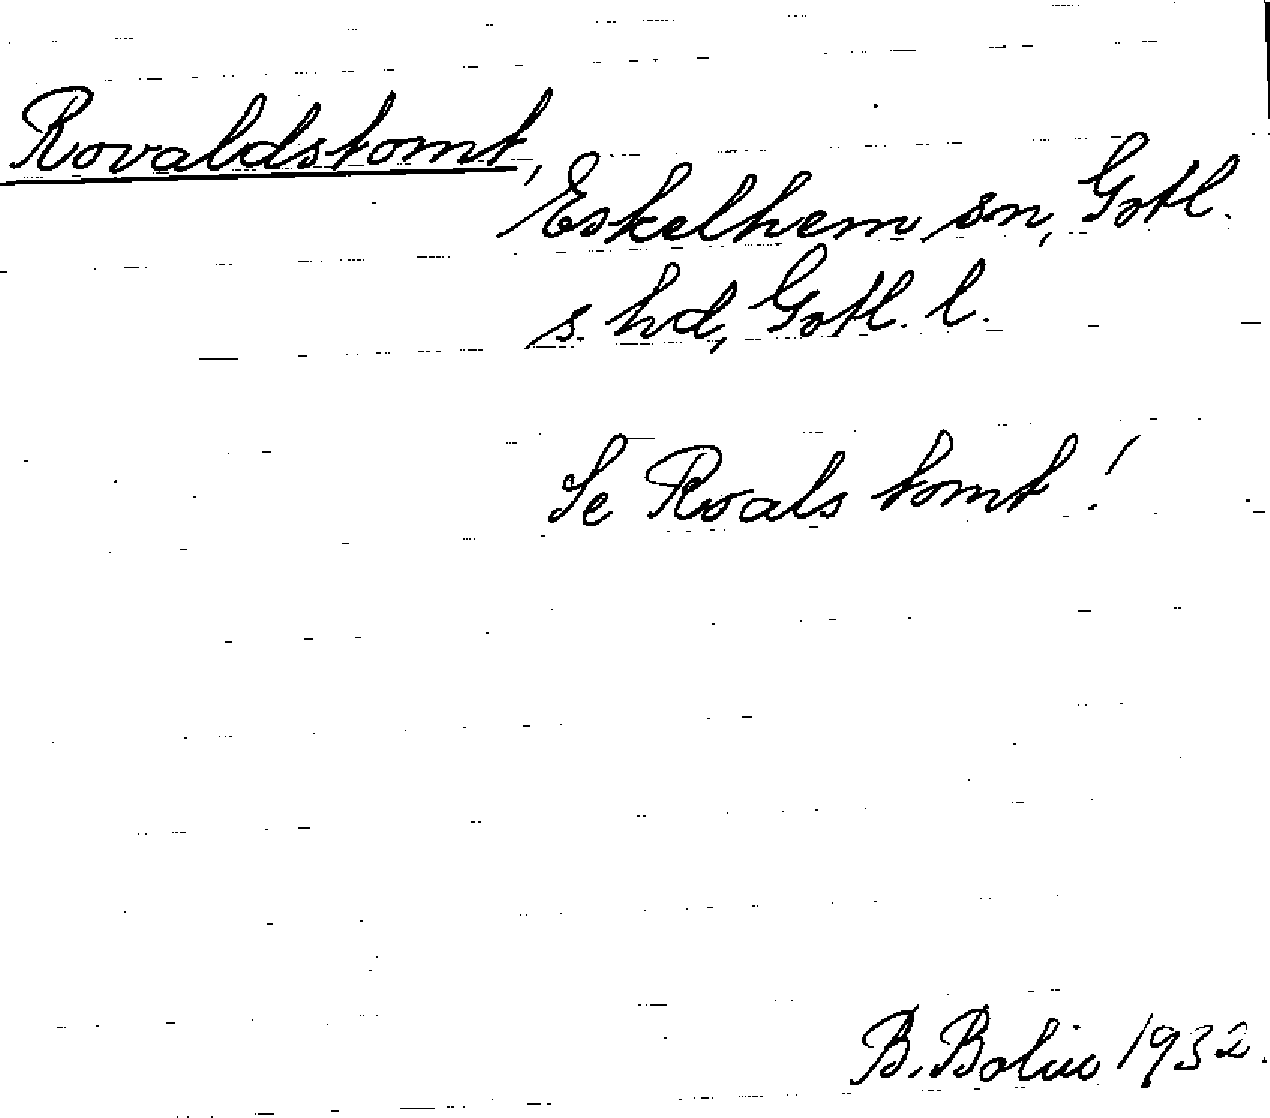 Rovaldstomt,
Eskelhem sn, Gotl.
s. hd, Gotl. l.
Se Roals tomt!
B. Bolin 1932.